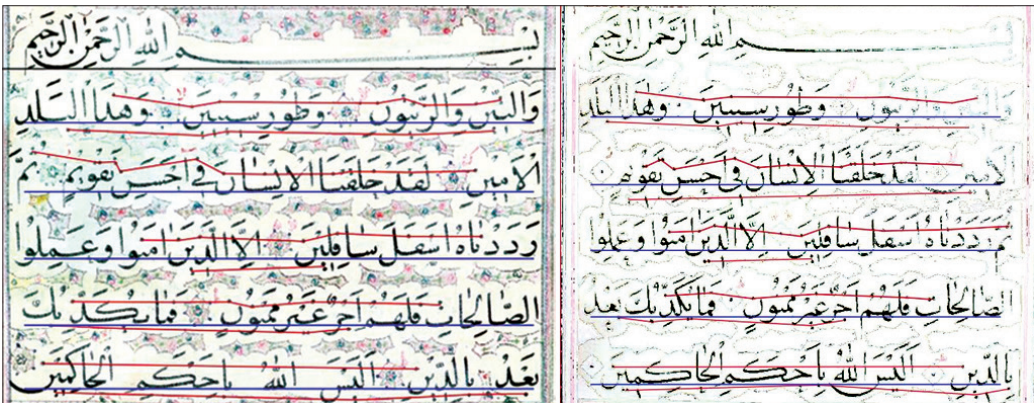 بِسْمِ اللهِ الرَّحْمٰنِ الرَّحِيمِ
وَالتِّينِ وَالزَّيْتُونِ وَطُورِ سِينِينَ وَهٰذَا الْبَلَدِ
الْاَمِينِ لَقَدْ خَلَقْنَا الْاِنْسَانَ فِي اَحْسَنِ تَقْوِيمٍ ثُمَّ
رَدَدْنَاهُ اَسْفَلَ سَافِلِينَ اِلَّا الَّذِينَ اٰمَنُوا وَعَمِلُوا
الصَّالِحَاتِ فَلَهُمْ اَجْرٌ غَيْرُ مَمْنُونٍ فَمَا يُكَذِّبُكَ
بَعْدُ بِالدِّينِ اَلَيْسَ اللهُ بِاَحْكَمِ الْحَاكِمِينَ
بِسْمِ اللهِ الرَّحْمٰنِ الرَّحِيمِ
وَالتِّينِ وَالزَّيْتُونِ وَطُورِ سِينِينَ وَهٰذَا الْبَلَدِ
الْاَمِينِ لَقَدْ خَلَقْنَا الْاِنْسَانَ فِي اَحْسَنِ تَقْوِيمٍ
ثُمَّ رَدَدْنَاهُ اَسْفَلَ سَافِلِينَ اِلَّا الَّذِينَ اٰمَنُوا وَعَمِلُوا
الصَّالِحَاتِ فَلَهُمْ اَجْرٌ غَيْرُ مَمْنُونٍ فَمَا يُكَذِّبُكَ بَعْدُ
بِالدِّينِ اَلَيْسَ اللهُ بِاَحْكَمِ الْحَاكِمِينَ